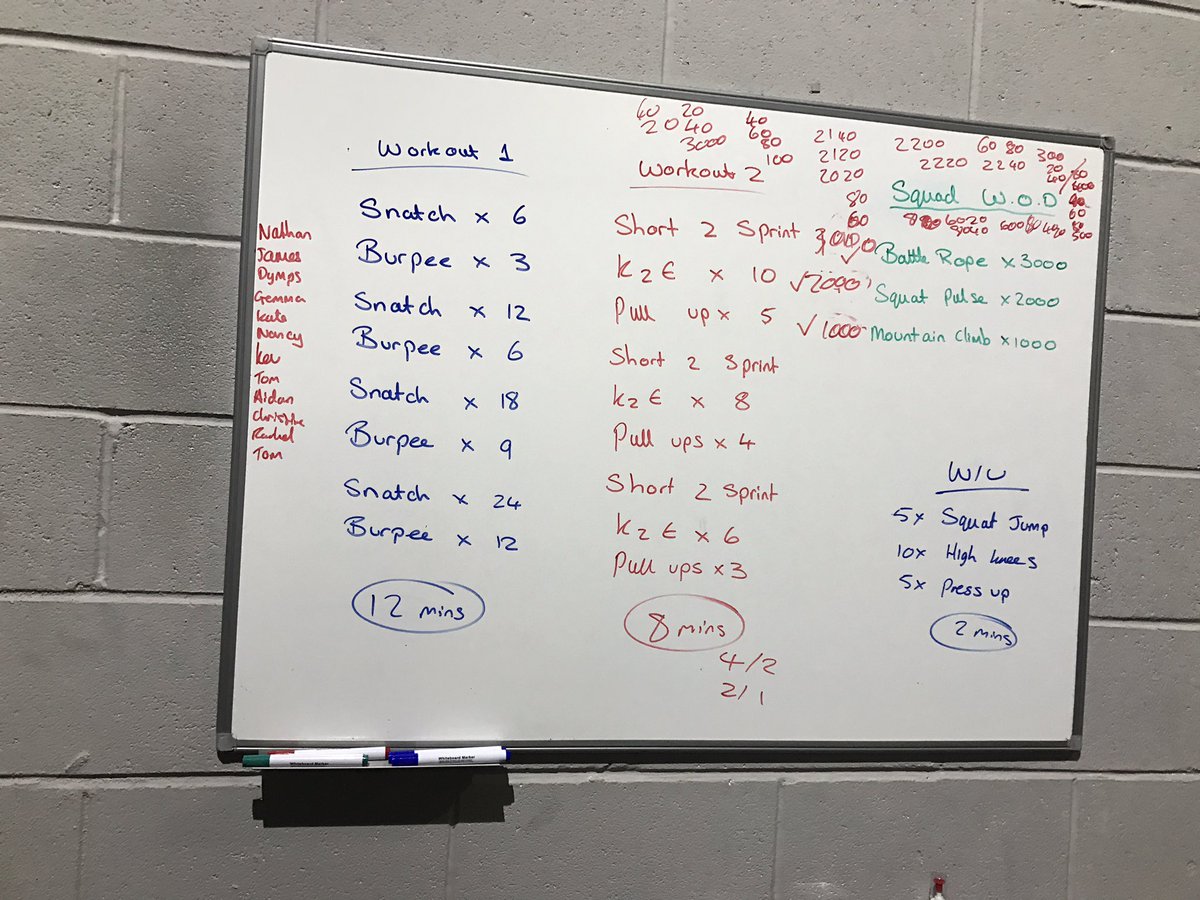 Workout 1
Snatch x 6
Burpee x 3
Snatch x 12
Burpee x 6
Snatch x 18
Burpee x 9
Snatch x 24
Burpee x 12
12 mins
Nathan
James
Dymps
Gemma
Kate
Nancy
Kev
Tom
Aidan
Christine
Rachel
Tom
60 20
2040
3000
40
60
80
100
2140
2120
2020
80
60
2200
2220 2240
60 80
300
Workout 2
Short 2 Sprint
K2E x 10
Pull up x 5
Short 2 Sprint
K2E x 8
Pull ups x 4
Short 2 Sprint
K2E x 6
Pull ups x 3
8 mins
4/2
2/1
Squad W.O.D
3000 ✓
Battle Rope x 3000
✓2000
Squat Pulse x 2000
✓1000
Mountain Climb x 1000
W/U
5x Squat Jump
10x High knees
5x Press up
2 mins
Whiteboard Marker
Whiteboard Marker